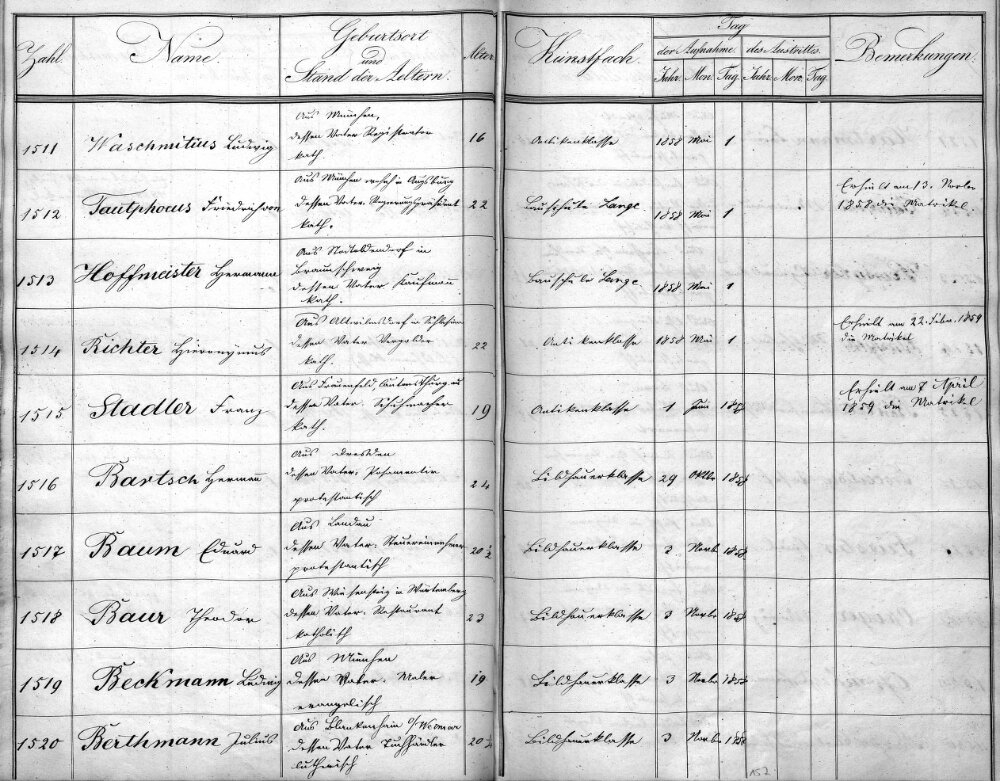 Zahl
Name.
Geburtsort
und
Stand der Aeltern.
Alter
Kunstfach.
Tag
der Aufnahme
des Austrittes.
Jahr. Mon. Tag.
Jahr. Mon. Tag.
Bemerkungen.
1511 Waschmitius Ludwig
Aus München,
dessen Vater Registrator
kath.
16
Antikenklasse 1858 Mai 1
1512 Tautphoeus Friedrich von
Aus München in Augsburg
dessen Vater Regierungspräsident
kath.
22
Bauschule Lange 1858 Mai 1
Erhielt am 13. Novbr
1858 die Matrikel.
1513 Hoffmeister Hermann
Aus Stadtoldendorf in
Braunschweig
dessen Vater Kaufmann
kath.
Bauschule Lange 1858 Mai 1
1514 Richter Hieronymus
Aus Altwilmsdorf in Schlesien
dessen Vater Vergolder
kath.
22
Antikenklasse 1858 Mai 1
Erhielt am 22. Febr. 1859
die Matrikel
1515 Stadler Franz
Aus Frauenfeld, Canton Thurgau
dessen Vater Schuhmacher
kath.
19
Antikenklasse 1 Juni 1858
Erhielt am 7 April
1859 die Matrikel
1516 Bartsch Hermann
Aus Dresden
dessen Vater: Posamentir
protestantisch
24
Bildhauerklasse 29 Oktbr 1858
1517 Baum Eduard
Aus Landau
dessen Vater: Steuereinnehmer
protestantisch
20 1/2
Bildhauerklasse 3 Novbr 1858
1518 Baur Theodor
Aus Wiesensteig in Würtemberg
dessen Vater: Restaurant
katholisch
23
Bildhauerklasse 3 Novbr 1858
1519 Beckmann Ludwig
Aus München
dessen Vater: Maler
evangelisch
19
Bildhauerklasse 3 Novbr 1858
1520 Berthmann Julius
Aus Blankenhain b/Weimar
dessen Vater Tuchhändler
lutherisch
20 1/2
Bildhauerklasse 3 Novbr 1858
152